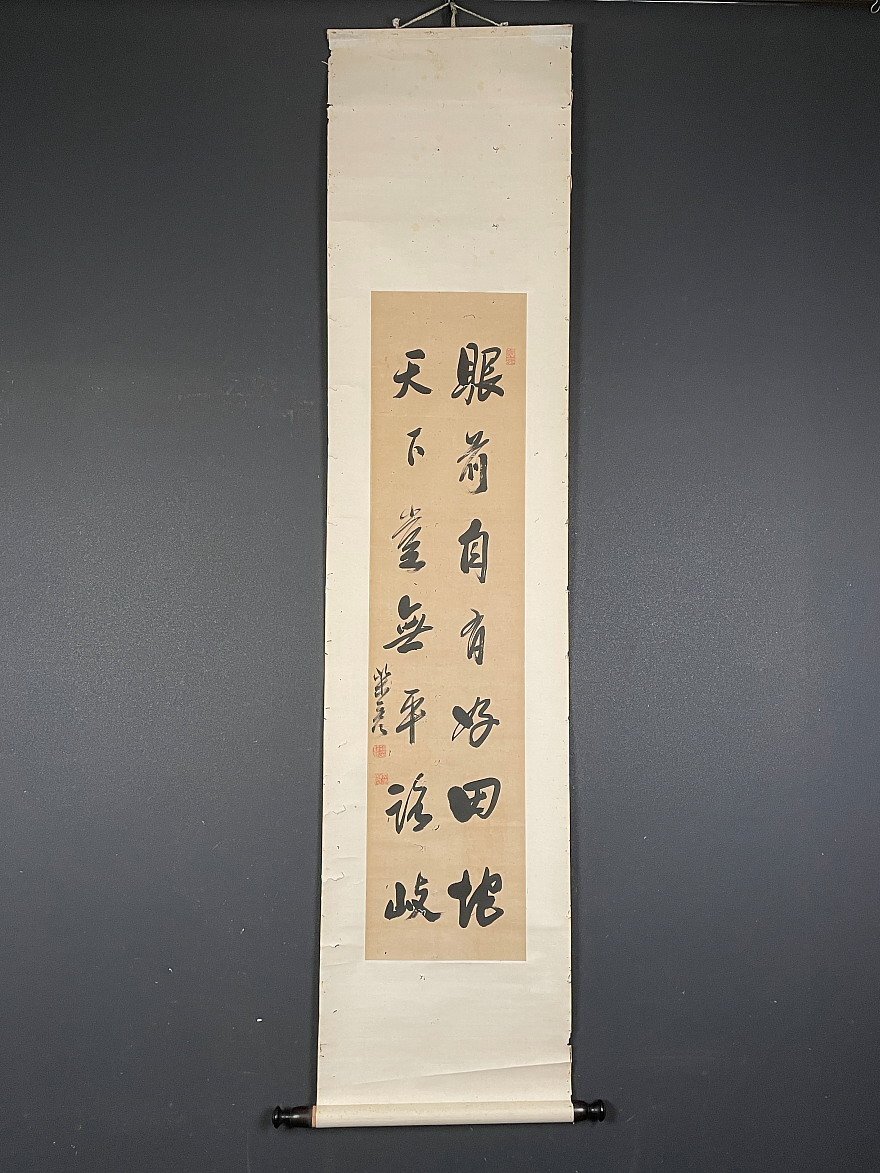 眼前自有好田地
天下豈無平路岐
柴彦